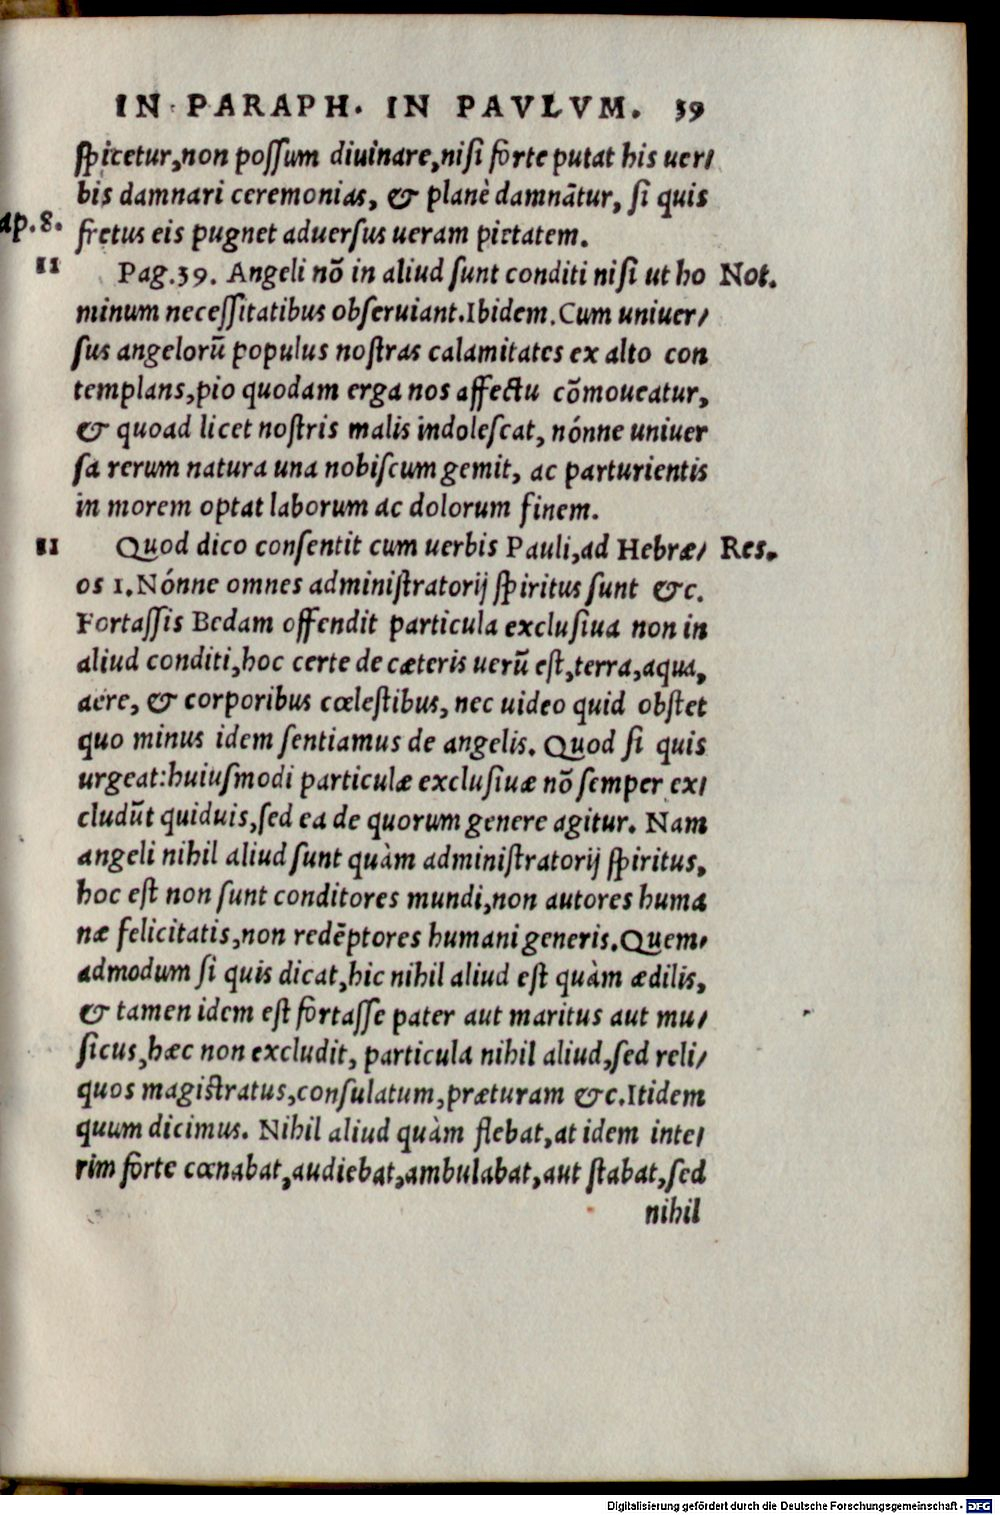 IN PARAPH. IN PAVLVM. 39
ſpicetur, non poſſum diuinare, niſi forte putat his uer/
bis damnari ceremonias, & planè damnãtur, ſi quis
ap.8. fretus eis pugnet aduerſus ueram pietatem.
11 Pag.39. Angeli nõ in aliud ſunt conditi niſi ut ho Not.
minum neceſſitatibus obſeruiant. Ibidem. Cum uniuer/
ſus angelorũ populus noſtras calamitates ex alto con
templans, pio quodam erga nos affectu cõmoueatur,
& quoad licet noſtris malis indoleſcat, nónne uniuer
ſa rerum natura una nobiſcum gemit, ac parturientis
in morem optat laborum ac dolorum finem.
11 Quod dico conſentit cum uerbis Pauli, ad Hebræ/ Res.
os 1. Nónne omnes adminiſtratorij ſpiritus ſunt &c.
Fortaſſis Bedam offendit particula excluſiua non in
aliud conditi, hoc certe de cæteris uerũ eſt, terra, aqua,
aëre, & corporibus cœleſtibus, nec uideo quid obſtet
quo minus idem ſentiamus de angelis. Quod ſi quis
urgeat: huiuſmodi particulæ excluſiuæ nõ ſemper ex/
cludũt quiduis, ſed ea de quorum genere agitur. Nam
angeli nihil aliud ſunt quàm adminiſtratorij ſpiritus,
hoc eſt non ſunt conditores mundi, non autores huma
næ felicitatis, non redẽptores humani generis. Quem/
admodum ſi quis dicat, hic nihil aliud eſt quàm ædilis,
& tamen idem eſt fortaſſe pater aut maritus aut mu/
ſicus, hæc non excludit, particula nihil aliud, ſed reli/
quos magiſtratus, conſulatum, præturam &c. Itidem
quum dicimus. Nihil aliud quàm flebat, at idem inte/
rim forte cœnabat, audiebat, ambulabat, aut ſtabat, ſed
nihil
Digitalisierung gefördert durch die Deutsche Forschungsgemeinschaft - DFG